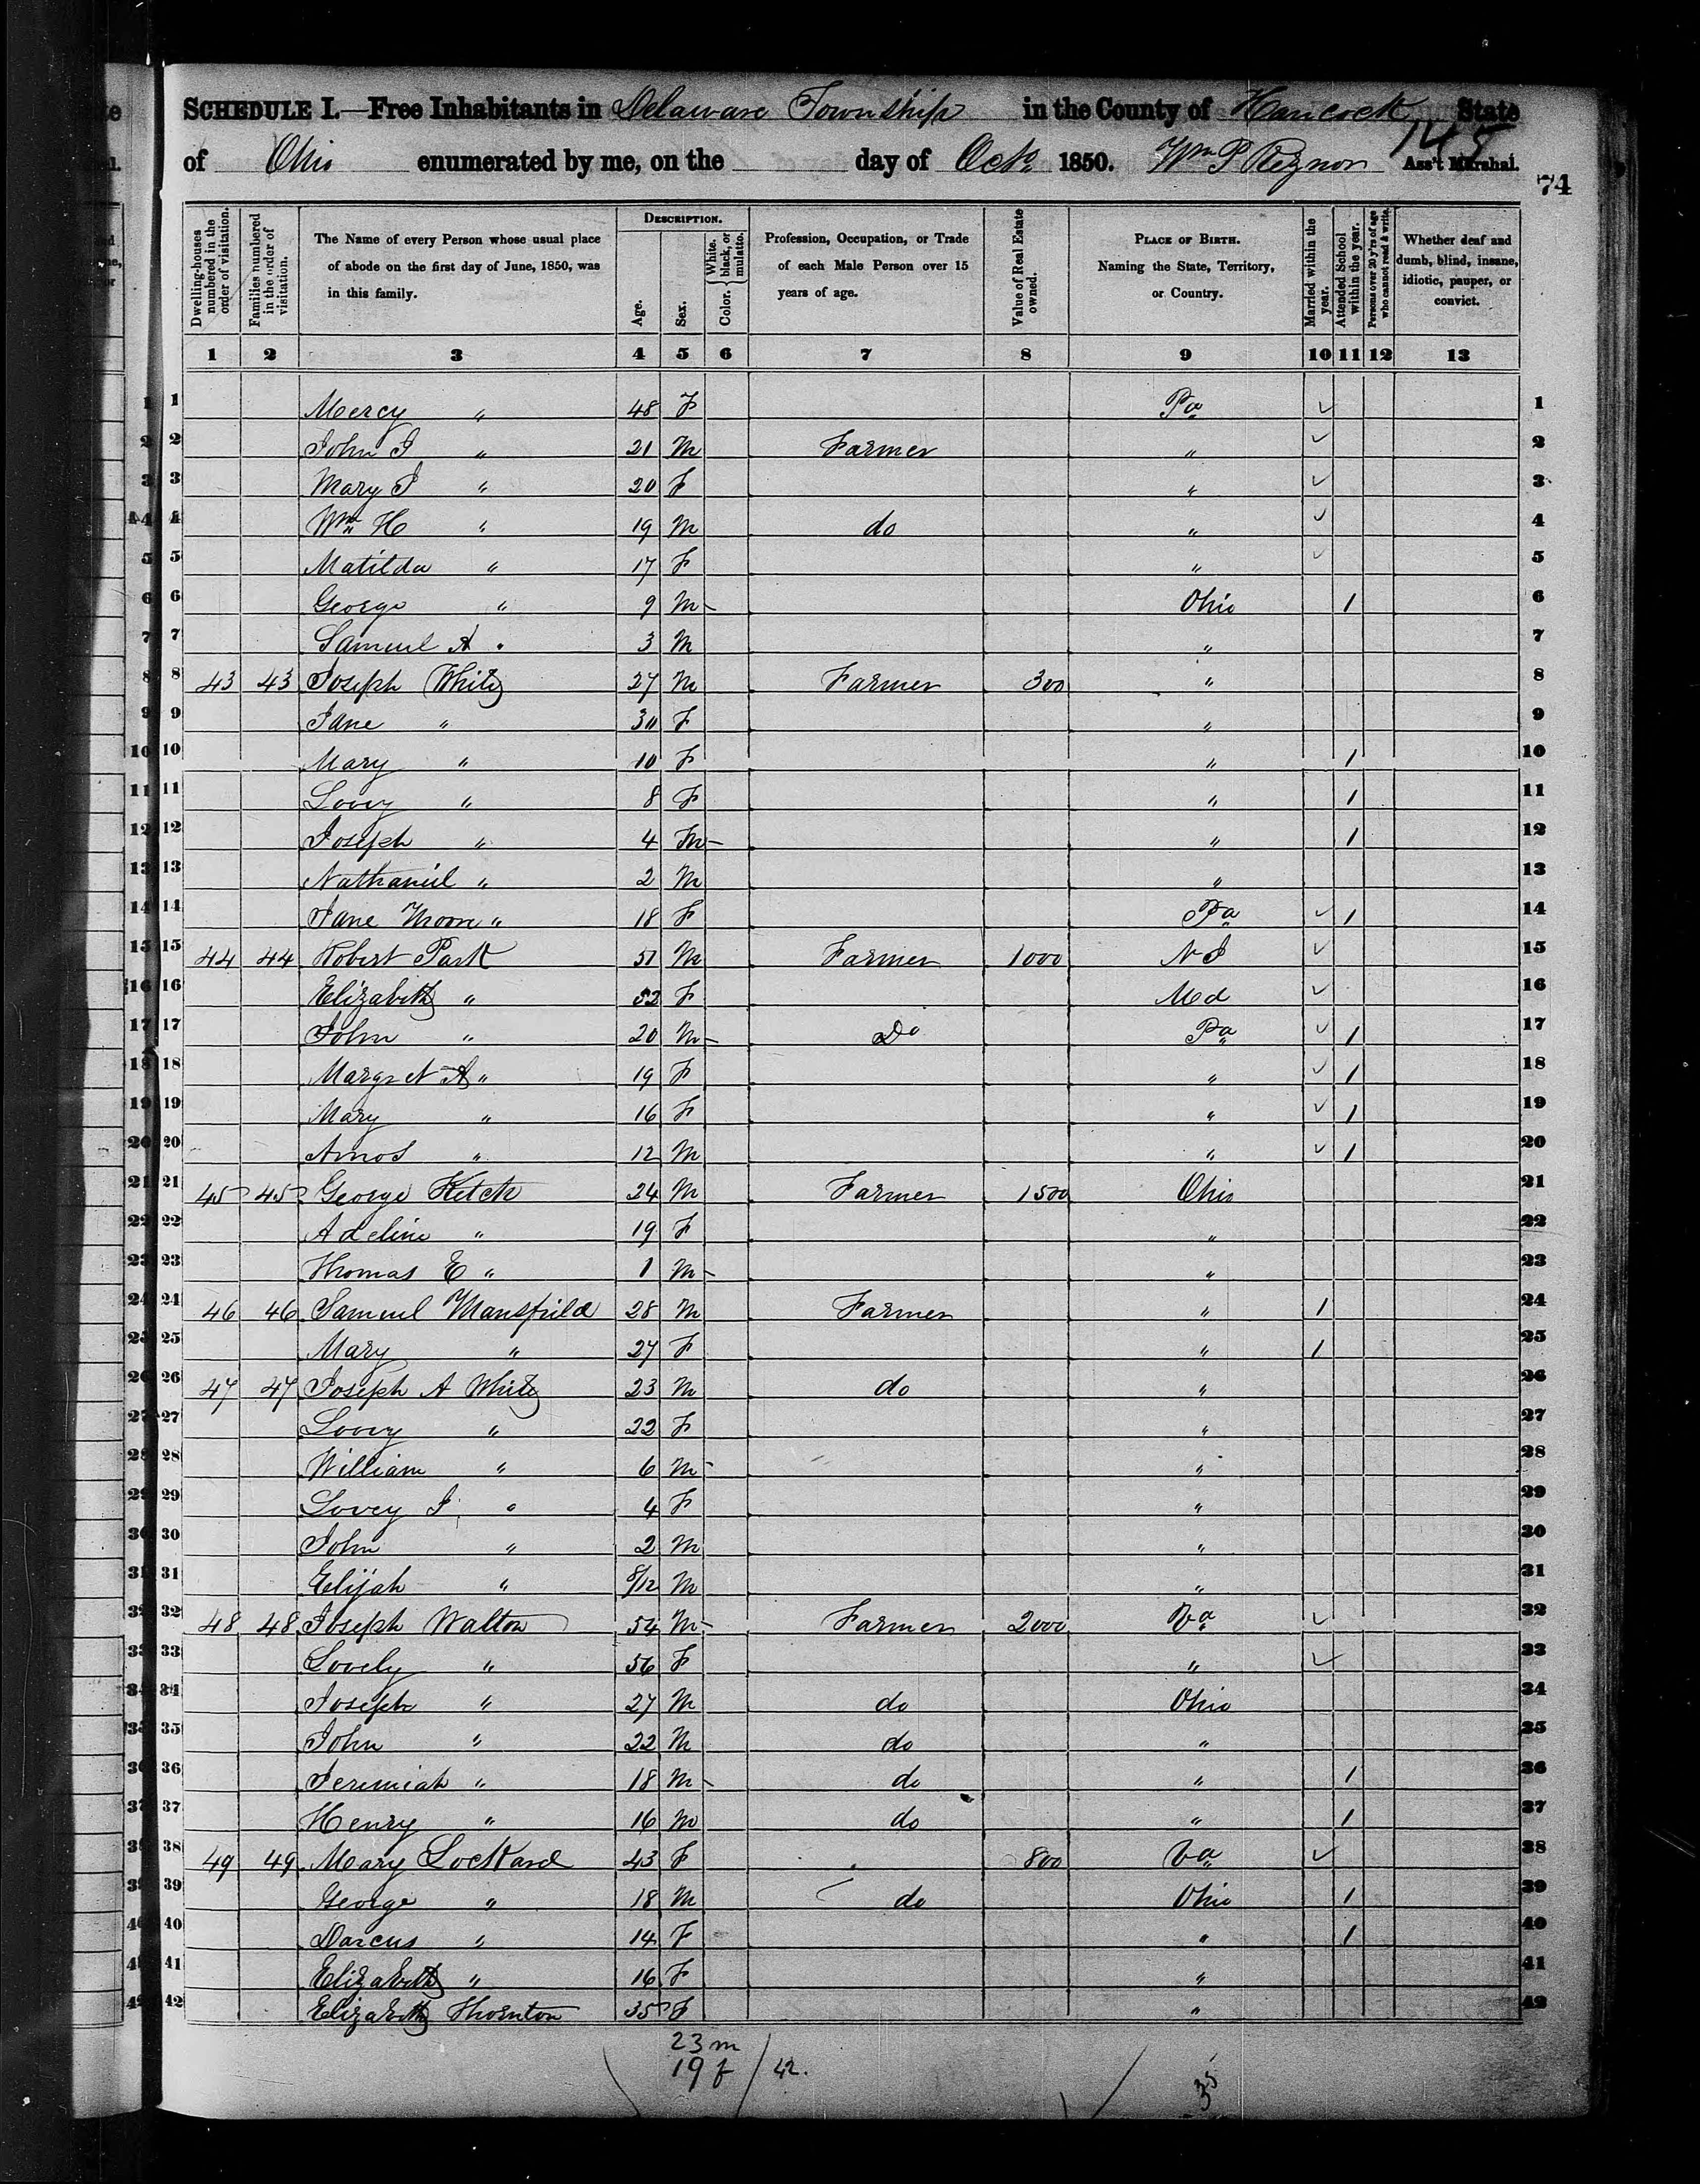 SCHEDULE I.—Free Inhabitants in Delaware Township in the County of Hancock State
of Ohio enumerated by me, on the day of Oct. 1850. Wm P Reznor Ass't Marshal.
74
Dwelling-houses numbered in the order of visitation.
Families numbered in the order of visitation.
The Name of every Person whose usual place of abode on the first day of June, 1850, was in this family.
DESCRIPTION.
Age.
Sex.
Color. { White, black, or mulatto.
Profession, Occupation, or Trade of each Male Person over 15 years of age.
Value of Real Estate owned.
PLACE OF BIRTH. Naming the State, Territory, or Country.
Married within the year.
Attended School within the year.
Persons over 20 y'rs of age who cannot read & write.
Whether deaf and dumb, blind, insane, idiotic, pauper, or convict.
1 2 3 4 5 6 7 8 9 10 11 12 13
1 Mercy " 48 F Pa ✓ 1
2 John J " 21 M Farmer " ✓ 2
3 Mary J " 20 F " ✓ 3
4 Wm H " 19 M do " ✓ 4
5 Matilda " 17 F " ✓ 5
6 George " 9 M Ohio 1 6
7 Samuel A " 3 M " 7
8 43 43 Joseph White 27 M Farmer 300 " 8
9 Jane " 30 F " 9
10 Mary " 10 F " 1 10
11 Lovey " 8 F " 1 11
12 Joseph " 4 M " 1 12
13 Nathaniel " 2 M " 13
14 Jane Moore " 18 F Pa ✓ 1 14
15 44 44 Robert Park 51 M Farmer 1000 N J ✓ 15
16 Elizabeth " 52 F Md ✓ 16
17 John " 20 M Do Pa ✓ 1 17
18 Margret A " 19 F " ✓ 1 18
19 Mary " 16 F " ✓ 1 19
20 Amos " 12 M " ✓ 1 20
21 45 45 George Ketch 24 M Farmer 1500 Ohio 21
22 Adeline " 19 F " 22
23 Thomas E " 1 M " 23
24 46 46 Samuel Mansfield 28 M Farmer " 1 24
25 Mary " 27 F " 1 25
26 47 47 Joseph A White 23 M do " 26
27 Lovey " 22 F " 27
28 William " 6 M " 28
29 Lovey J " 4 F " 29
30 John " 2 M " 30
31 Elijah " 8/12 M " 31
32 48 48 Joseph Walton 54 M Farmer 2000 Va ✓ 32
33 Lovely " 56 F " ✓ 33
34 Joseph " 27 M do Ohio 34
35 John " 22 M do " 35
36 Jeremiah " 18 M do " 1 36
37 Henry " 16 M do " 1 37
38 49 49 Mary Lockard 43 F 800 Va ✓ 38
39 George " 18 M do Ohio 1 39
40 Darcus " 14 F " 1 40
41 Elizabeth " 16 F " 41
42 Elizabeth Thornton 35 F " 42
23 m
19 f / 42.
35